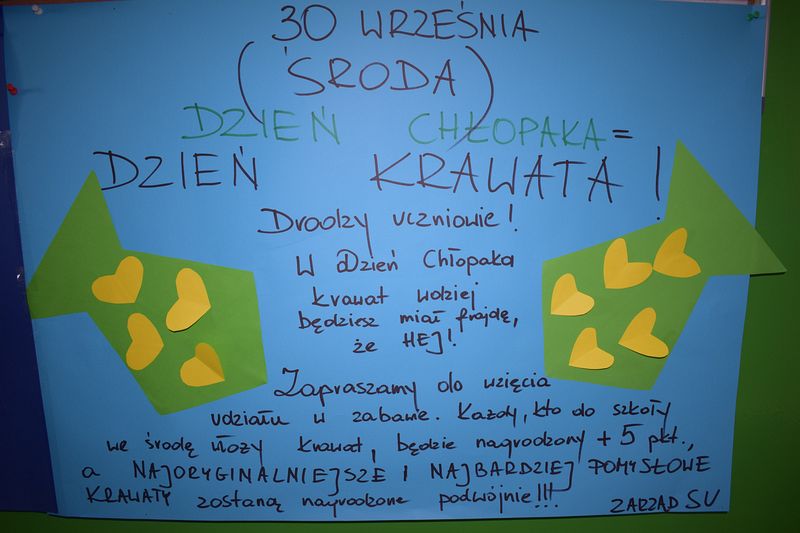 30 WRZEŚNIA
(ŚRODA)
DZIEŃ CHŁOPAKA =
DZIEŃ KRAWATA !
Drodzy uczniowie!
W Dzień Chłopaka
krawat wdziej
będziesz miał frajdę,
że HEJ!
Zapraszamy do wzięcia
udziału w zabawie. Każdy, kto do szkoły
we środę włoży krawat, będzie nagrodzony + 5 pkt.,
a NAJORYGINALNIEJSZE I NAJBARDZIEJ POMYSŁOWE
KRAWATY zostaną nagrodzone podwójnie!!!
ZARZĄD SU